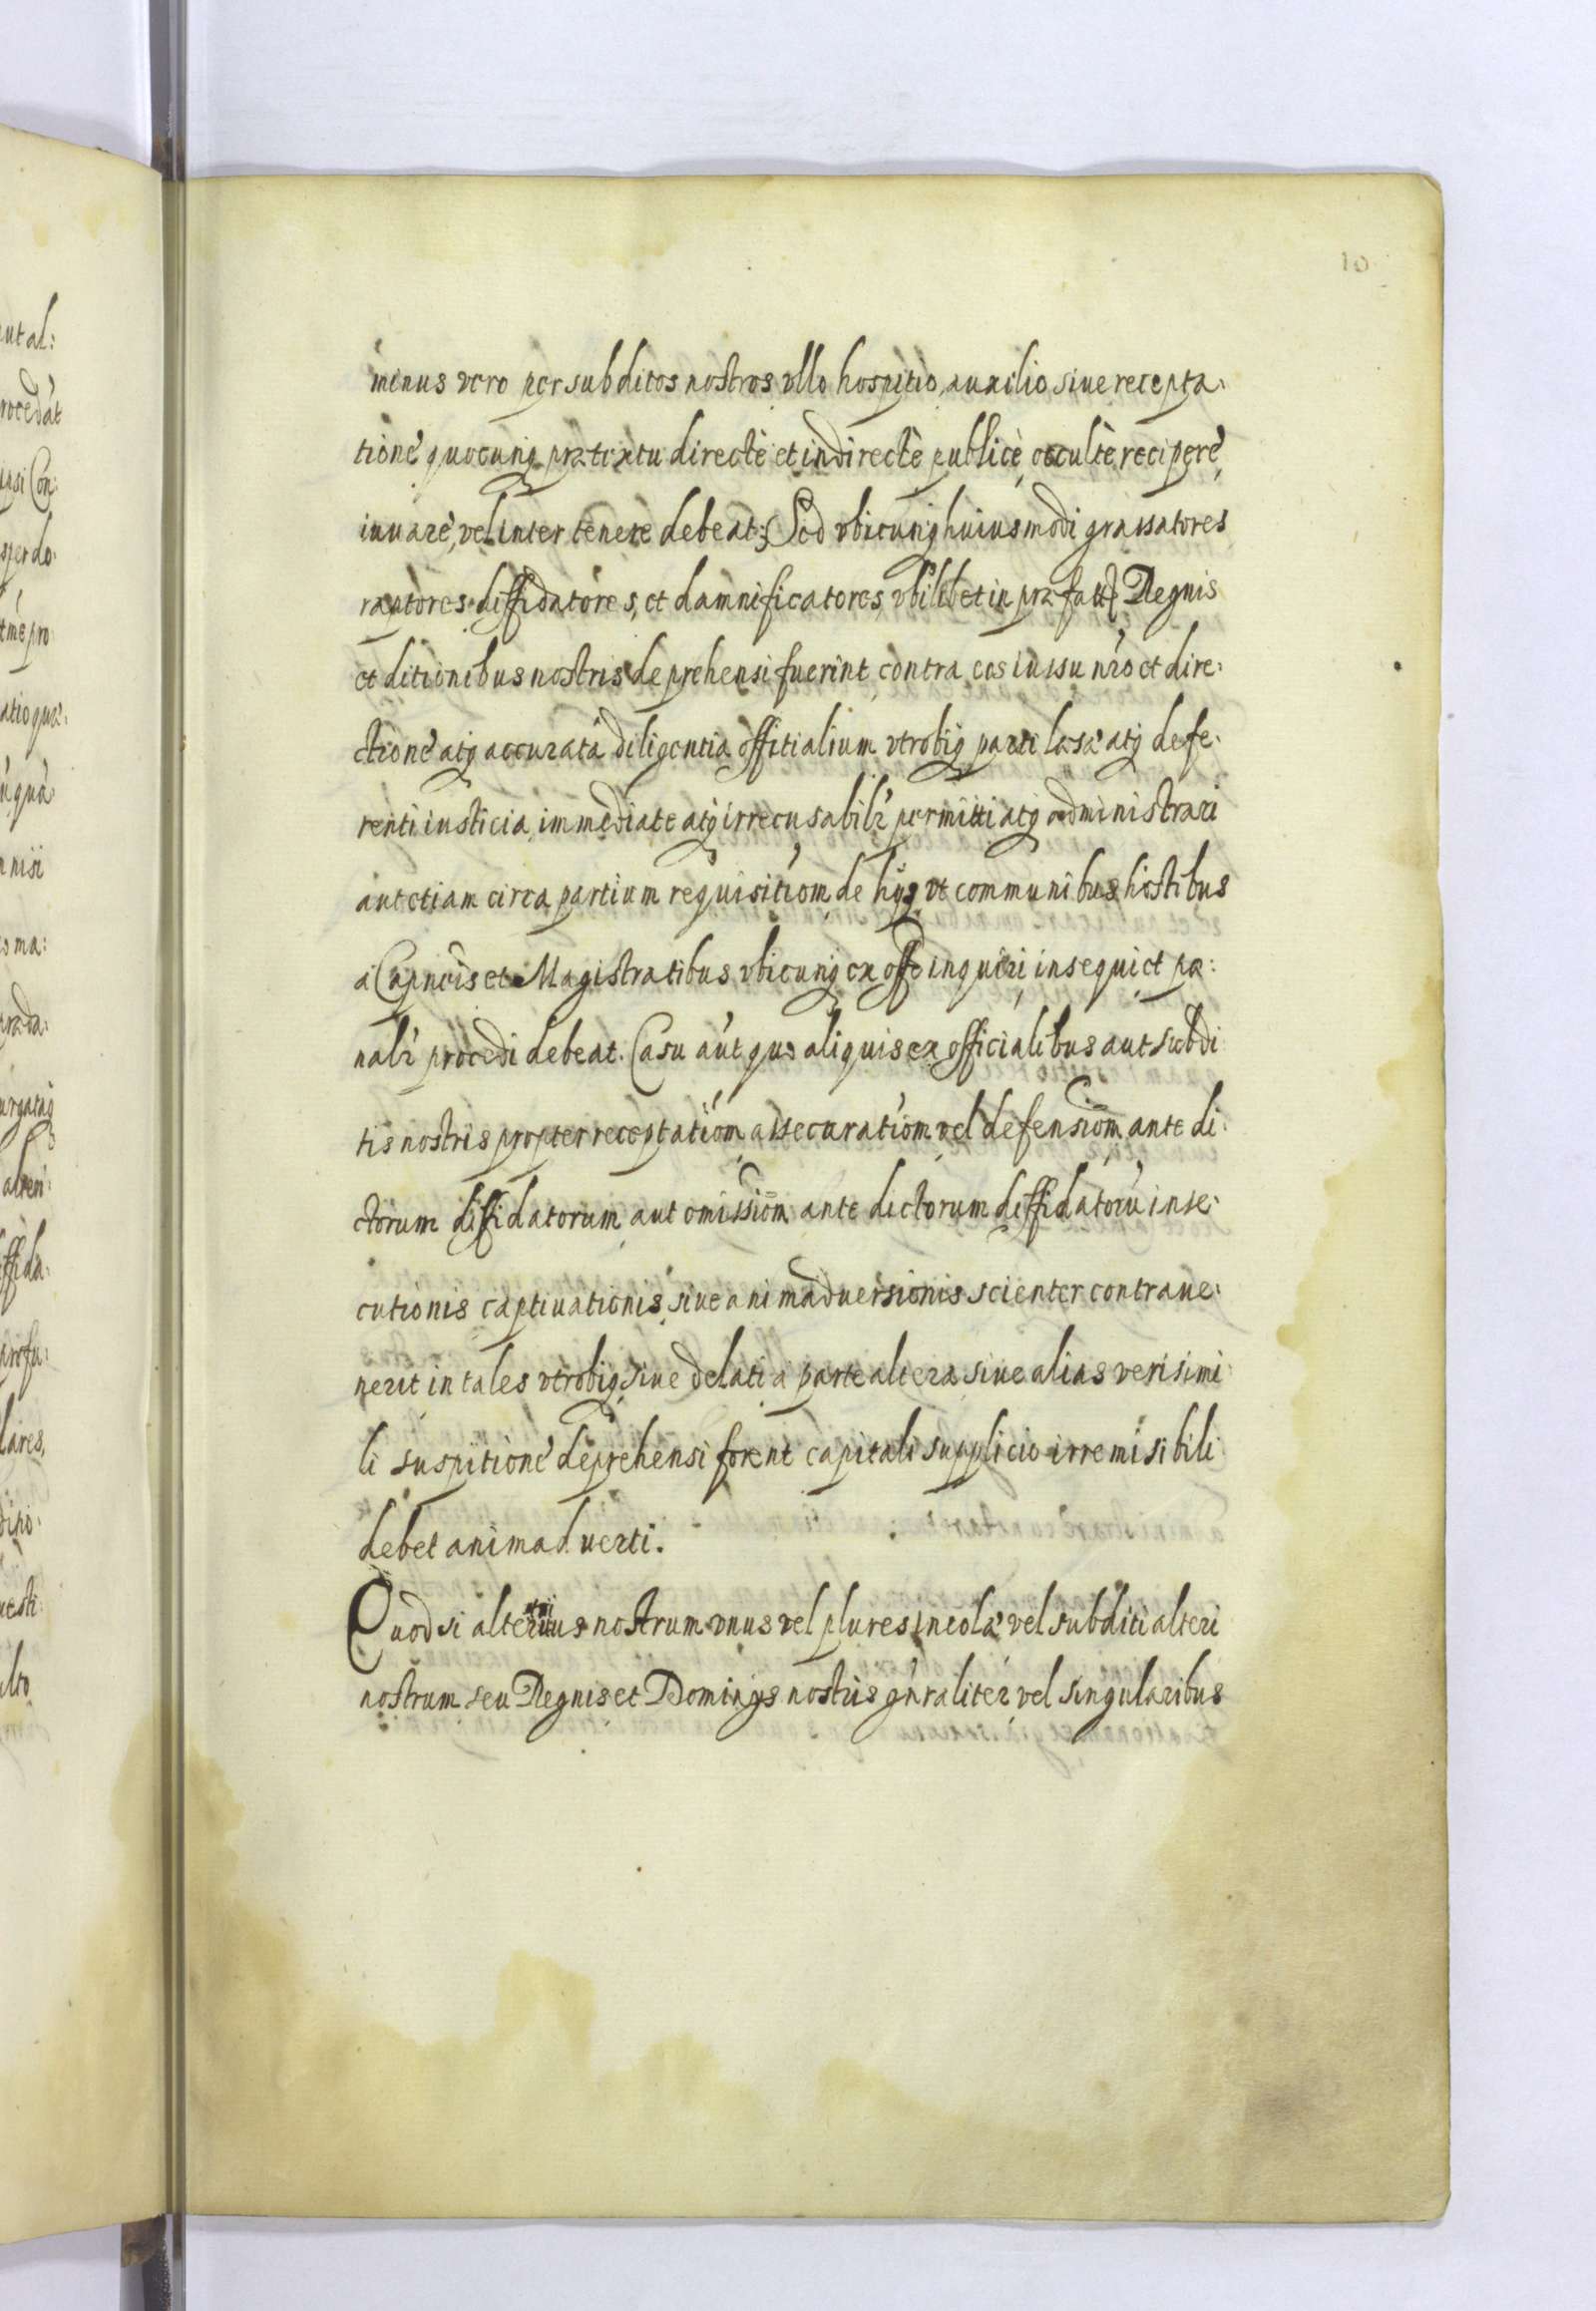 10
minus vero per subditos nostros vllo hospitio, auxilio siue recepta:
tione quocunq; prætextu directè et indirectè publicè, occultè recipere,
iuuare, vel inter tenere debeat; Sed vbicunq; huiusmodi grassatores
raptores diffidatores, et damnificatores, vbilibet in præfatis Regnis
et ditionibus nostris deprehensi fuerint, contra eos iussu nr̃o et dire:
ctione atq; accurata diligentia offitialium vtrobiq; parti læsæ atq; defe:
renti iusticia, immediate atq; irrecusabilr̃ permitti atq; administrari
aut etiam circa partium requisitiom̃ de hijs, vt communibus hostibus
à Capncis et Magistratibus vbicunq; ex offo inquiri, insequi et pœ:
nalr̃ procedi debeat. Casu aut quo aliquis ex officialibus aut subdi:
tis nostris propter receptatiom̃ assecuratiom̃ vel defensiom̃ ante di:
ctorum diffidatorum aut omissiom̃ ante dictorum diffidatorũ inse:
cutionis captiuationis, siue animaduersionis scienter contraue:
nerit in tales vtrobiq; siue delati à parte altera, siue alias verisimi:
li suspitione deprehensi forent capitali supplicio irremisibili
debet animaduerti.
Quod si alterius nostrum vnus vel plures incolæ vel subditi alteri
nostrum seu Regnis et Dominijs nostris gñraliter vel singularibus
ut al:
rocedat
ipsi Con:
sper do:
pro
nisi
ma:
diffida:
lares,